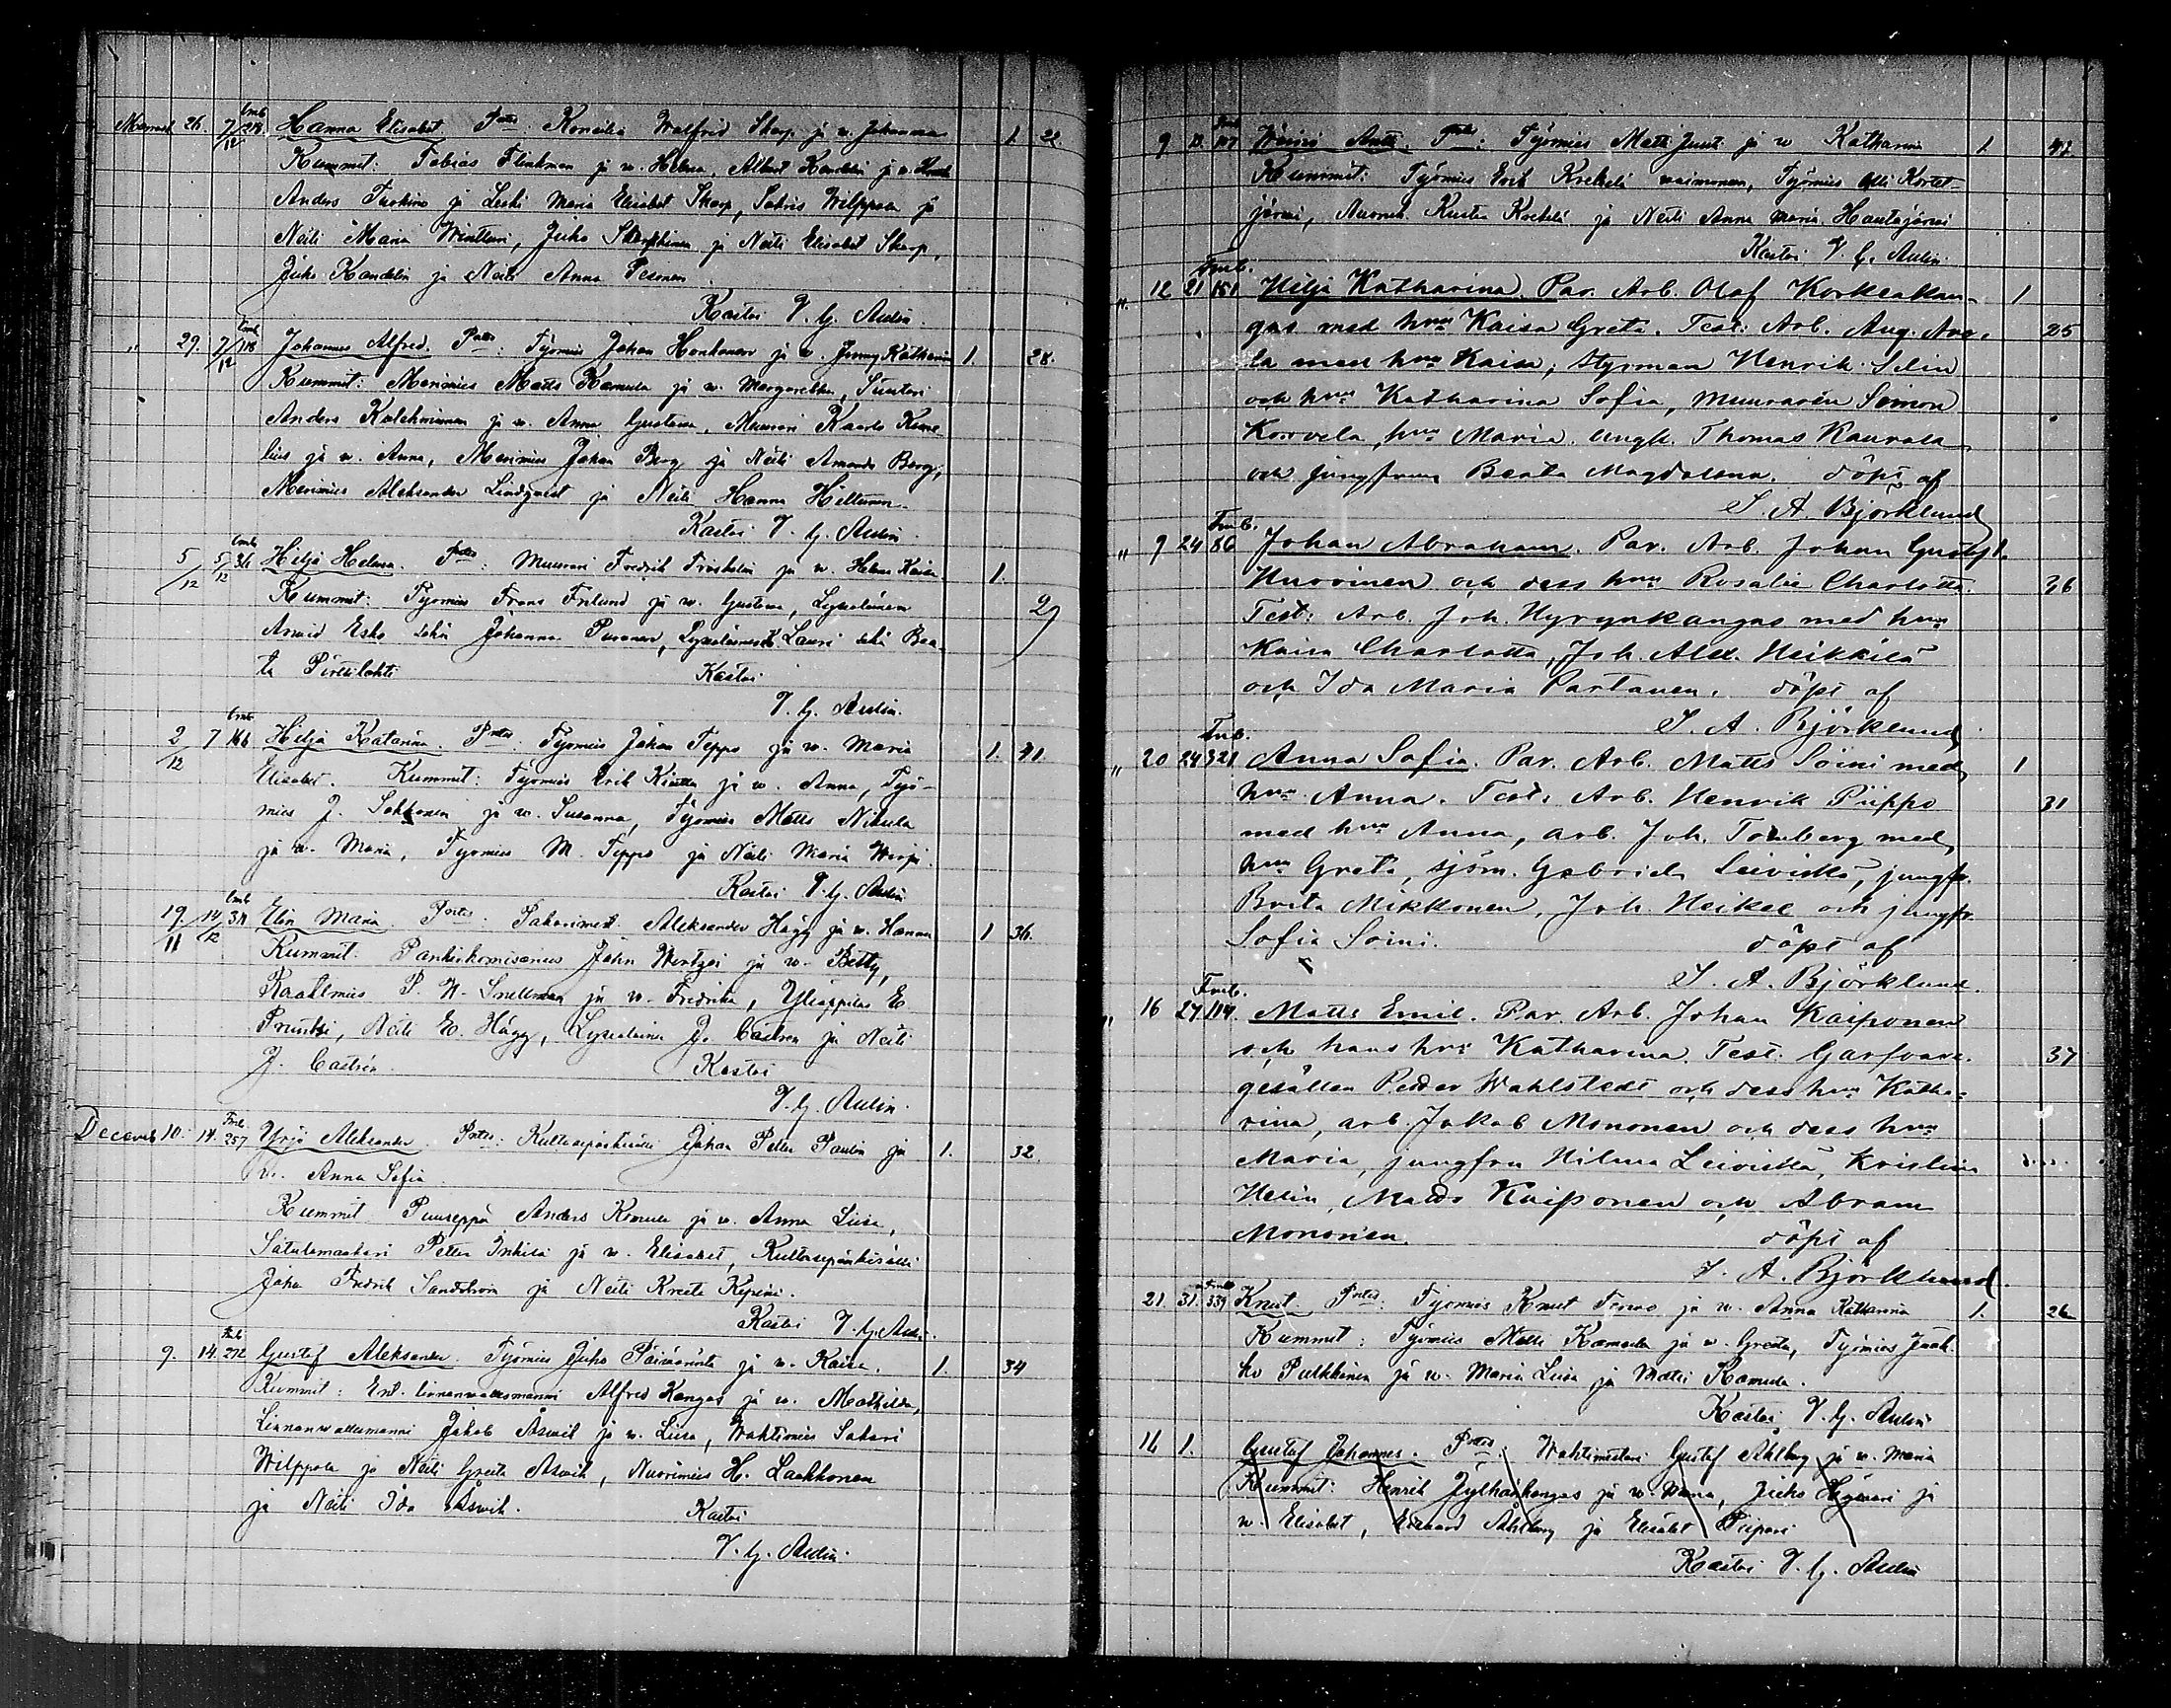 26. 7/12 278 Hanna Elisabet Ptes: Walfrid Skarp ja w. Johanna 1 22.
Kummit: Tobias Flinkman ja w. Helena, Albert Kandelin ja w.
Anders Turkino ja Leski Maria Elisabet Skarp, Sakris Wilppola ja
Neiti Maria, Juho ja Neiti Elisabet Skarp,
Juho Kandelin ja Neiti Anna Pesonen
Kastoi V. Hj. Aulin.
" 29. 7/12 118 Johannes Alfred. Ptes: Työmies Johan Honkanen ja w. Jenny Katharina 1. 28.
Kummit: Merimies Matts Ramula ja w. Margaretha, Suutari
Anders Kolehmainen ja w. Anna Gustava, Muurari Kaarlo
ja w. Anna, Merimies Johan Berg ja Neiti Amanda Berg,
Merimies Aleksander Lindqvist ja Neiti Hanna Hiltunen.
Kastoi V. Hj. Aulin
5/12 5/12 Hilja Helena. Ptes: Muurari Fredrik ja w. Helena Kaisa 1.
Kummit: Työmies Frans Frilund ja w. Gustava, Lyseolainen 29
Arwid Esko sekä Johanna Puranen, Lauri sekä Bea-
ta Pirttilahti Kastoi
V. Hj. Aulin.
2/12 7 166 Hilja Katarina. Ptes: Työmies Johan Teppo ja w. Maria 1. 41.
Elisabet. Kummit: Työmies Erik ja w. Anna, Työ-
mies J. Sakkonen ja w. Susanna, Työmies Matts Nikula
ja w. Maria, Työmies M. Teppo ja Neiti Maria
Kastoi V. Hj. Aulin
19/11 14/12 Elin Maria. Ptes: Aleksander Hägg ja w. Hanna 1 36.
Kummit. Pankinkomisarius John ja w. Betty,
Raatimies P. W. Snellman ja w. Fredrika, Ylioppilas E.
Neiti E. Hägg, Lyseolainen J. Castren ja Neiti
J. Castrén. Kastoi
V. Hj. Aulin.
Decemb 10. 14. 257 Yrjö Aleksander. Ptes: Kultasepänkisälli Johan Petter Paulin ja 1. 32.
w. Anna Sofia.
Kummit Puuseppä Anders Ramula ja w. Anna Liisa,
Satulamaakari Petter Inkilä ja w. Elisabet, Kultasepänkisälli
Johan Fredrik Sandström ja Neiti Kreeta
Kastoi V. Hj. Aulin.
9. 14. 272 Gustaf Aleksander. Työmies Juho Päivärinta ja w. Kaisa. 1. 34
Kummit: Ent. linnanwaltismanni Alfred Kangas ja w. Mathilda,
Jakob Åswik ja w. Liisa, Wahtimies Sakari
Wilppola ja Neiti Greeta Åswik, Nuorimies H. Laakkonen
ja Neiti Ida Åswik. Kastoi
V. Hj. Aulin.
9 107 Antti. Ptes: Työmies Matti Juusi ja w Katharina 1. 42
Kummit: Työmies Erik Krekelä waimonen, Työmies Olli Kortet-
järwi, Nuorm. Kusta Krekelä ja Neiti Anna Maria Hautajärwi
Kastoi V. Hj. Aulin
" 12 21 151 Hilja Katharina. Par. Arb. Olof Korkeakan- 1
gas med hru Kaisa Greta. Test: Arb. Aug. Avo- 25
la med hru Kaisa, styrman Henrik Selin
och hru Katharina Sofia, muuraren Simon
Korvela, hru Maria. ungk. Thomas Kaurala
och jungfrun Beata Magdalena. döpt af
S. A. Björklund
" 9 24 86 Johan Abraham. Par. Arb. Johan Gustaf 1.
Hurvinen och dess hru Rosalie Charlotta. 36
Test: Arb. Joh. Hyrynkangas med hru
Kaisa Charlotta, Joh. Alex. Heikkilä
och Ida Maria Partanen. döpt af
S. A. Björklund.
" 20 24 321 Anna Sofia. Par. Arb. Matts Soini med 1
hru Anna. Test. Arb. Henrik Piippo 31
med hru Anna, arb. Joh. Tornberg med
hru Greta, sjöm. Gabriel Leiviskä, jungfr.
Brita Mikkonen, Joh. Heikel och jungfr.
Sofia Soini. döpt af
S. A. Björklund.
" 16 27 114. Matts Emil. Par. Arb. Johan Kaiponen
och hans hru Katharina. Test. Garfvare- 37
gesällen Peder Wahlstedt och dess hru Katha-
rina, arb. Jakob Mononen och dess hru
Maria, jungfru Hilma Leiviskä, Kristina
Helin, Matts Kaiponen och Abram
Mononen. döpt af
S. A. Björklund.
21. 31. 339 Knut Ptes: Työmies Knut ja w. Anna Katharina 1. 26
Kummit: Työmies Matts Ramula ja w. Greeta, Työmies Jaak-
ko Pulkkinen ja w. Maria Liisa ja Matti Ramula.
Kastoi V. Hj. Aulin
16 1. Gustaf Johannes. Ptes: Wahtimestari Gustaf Åhlberg ja w. Maria
Kummit: Henrik Jylhänkangas ja w. Juho ja
w. Elisabet, Edward Åhlberg ja Elisabet Piipari
Kastoi V. Hj. Aulin